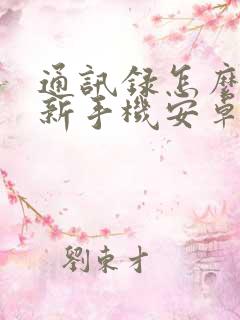 通訊録怎麼
新手機安卓
劉東才